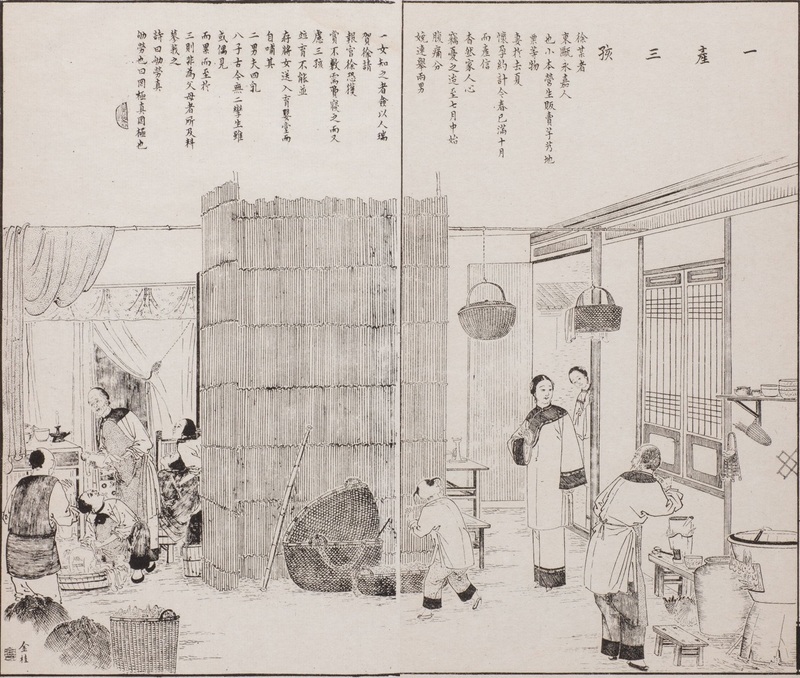 一產三孩
徐某者
東甌永嘉人
也小本營生販賣芋艿地
栗等物
妻於去夏
懷孕約計今春已滿十月
而產信
杳然家人心
竊憂之迨至七月中始
腹痛分
娩連舉兩男
一女知之者僉以人瑞
賀徐請
報官徐恐獲
賞不敷需費寢之而又
慮三孩
並育不能並
存將女送入育嬰堂而
自哺其
二男夫四乳
八子古今無二孿生雖
或偶見
而累而至於
三則非為父母者所及料
蓼莪之
詩曰劬勞真
劬勞也曰罔極真罔極也
金桂